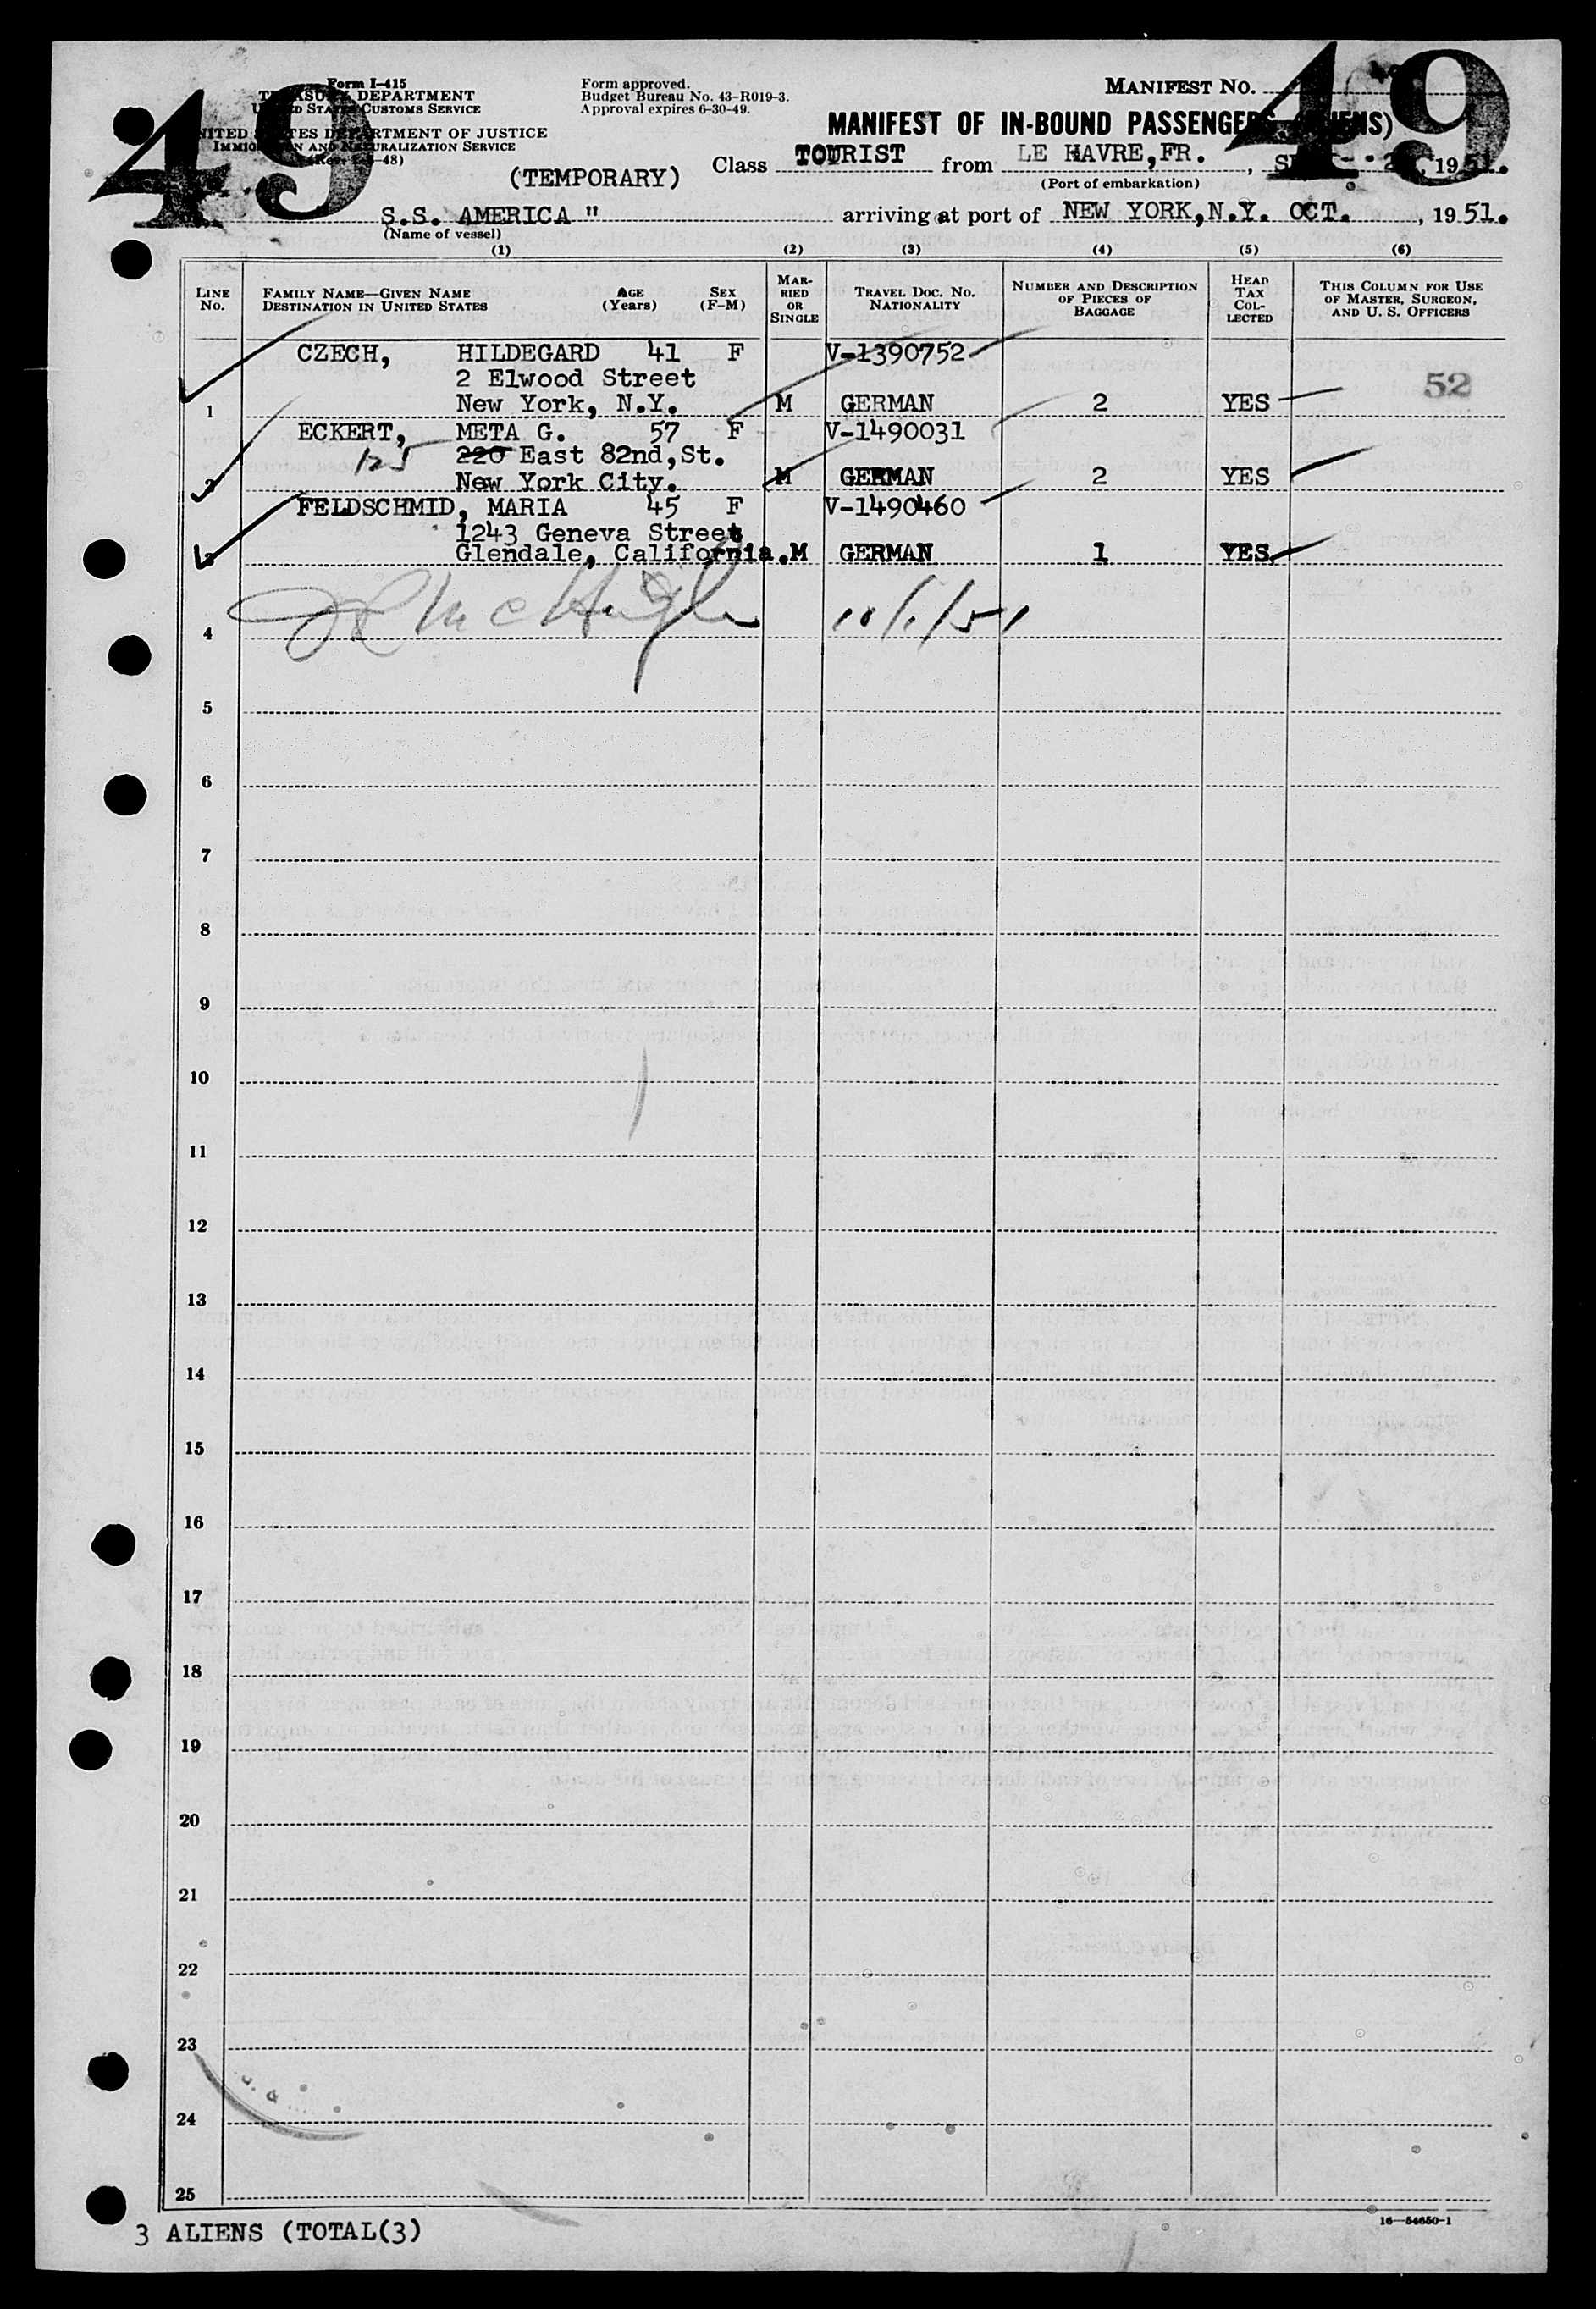 49
49
Form I-415
TREASURY DEPARTMENT
UNITED STATES CUSTOMS SERVICE
UNITED STATES DEPARTMENT OF JUSTICE
IMMIGRATION AND NATURALIZATION SERVICE
Form approved.
Budget Bureau No. 43-R019-3.
Approval expires 6-30-49.
MANIFEST NO.
MANIFEST OF IN-BOUND PASSENGERS (ALIENS)
(TEMPORARY) Class TOURIST from LE HAVRE,FR. , 1951.
(Port of embarkation)
S.S. AMERICA " arriving at port of NEW YORK,N.Y. OCT. , 1951.
(Name of vessel)
(1) (2) (3) (4) (5) (6)
LINE No. FAMILY NAME—GIVEN NAME DESTINATION IN UNITED STATES AGE (Years) SEX (F-M) MARRIED OR SINGLE TRAVEL DOC. NO. NATIONALITY NUMBER AND DESCRIPTION OF PIECES OF BAGGAGE HEAD TAX COLLECTED THIS COLUMN FOR USE OF MASTER, SURGEON, AND U. S. OFFICERS
CZECH, HILDEGARD 41 F V-1390752
2 Elwood Street
1 New York, N.Y. M GERMAN 2 YES 52
ECKERT, META G. 57 F V-1490031
125 220 East 82nd,St.
2 New York City. M GERMAN 2 YES
FELDSCHMID, MARIA 45 F V-1490460
1243 Geneva Street
3 Glendale, California.M GERMAN 1 YES
4 McHugh 10/1/51
5
6
7
8
9
10
11
12
13
14
15
16
17
18
19
20
21
22
23
24
25
3 ALIENS (TOTAL(3)
16—54650-1